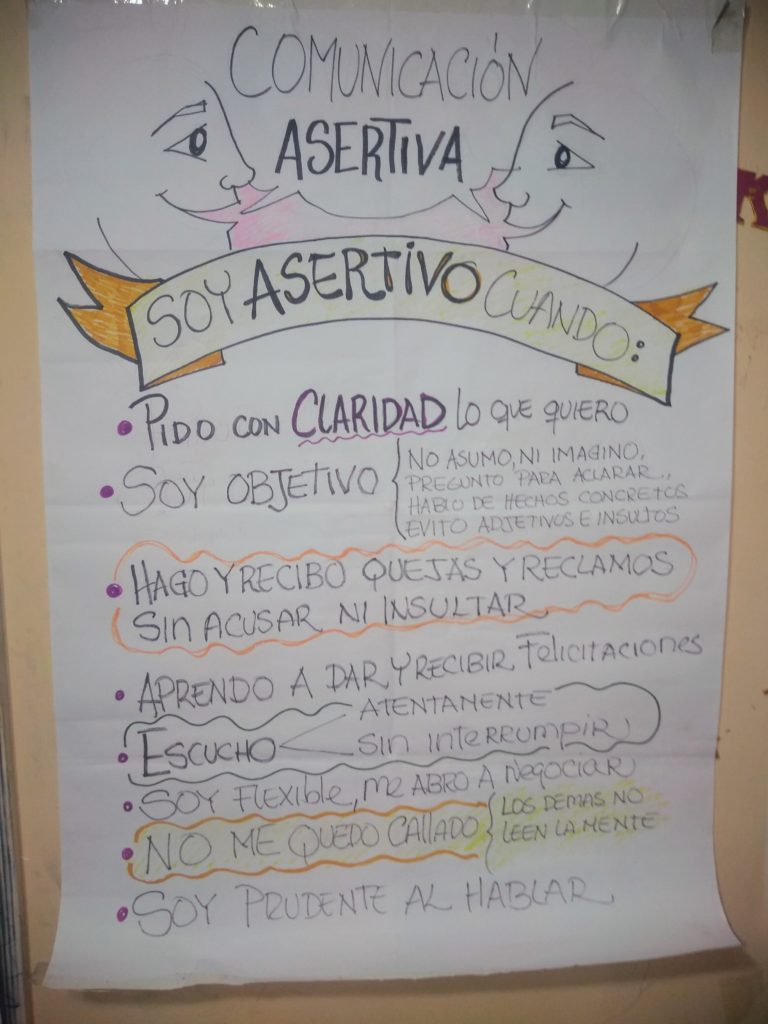 COMUNICACIÓN
ASERTIVA
SOY ASERTIVO CUANDO:
• PIDO CON CLARIDAD LO QUE QUIERO
• SOY OBJETIVO
NO ASUMO, NI IMAGINO,
PREGUNTO PARA ACLARAR.,
HABLO DE HECHOS CONCRETOS
EVITO ADJETIVOS E INSULTOS
• HAGO Y RECIBO QUEJAS Y RECLAMOS
SIN ACUSAR NI INSULTAR
• APRENDO A DAR Y RECIBIR FELICITACIONES
• ESCUCHO
ATENTAMENTE
SIN INTERRUMPIR
• SOY FLEXIBLE, ME ABRO A NEGOCIAR
• NO ME QUEDO CALLADO
LOS DEMAS NO
LEEN LA MENTE
• SOY PRUDENTE AL HABLAR
K